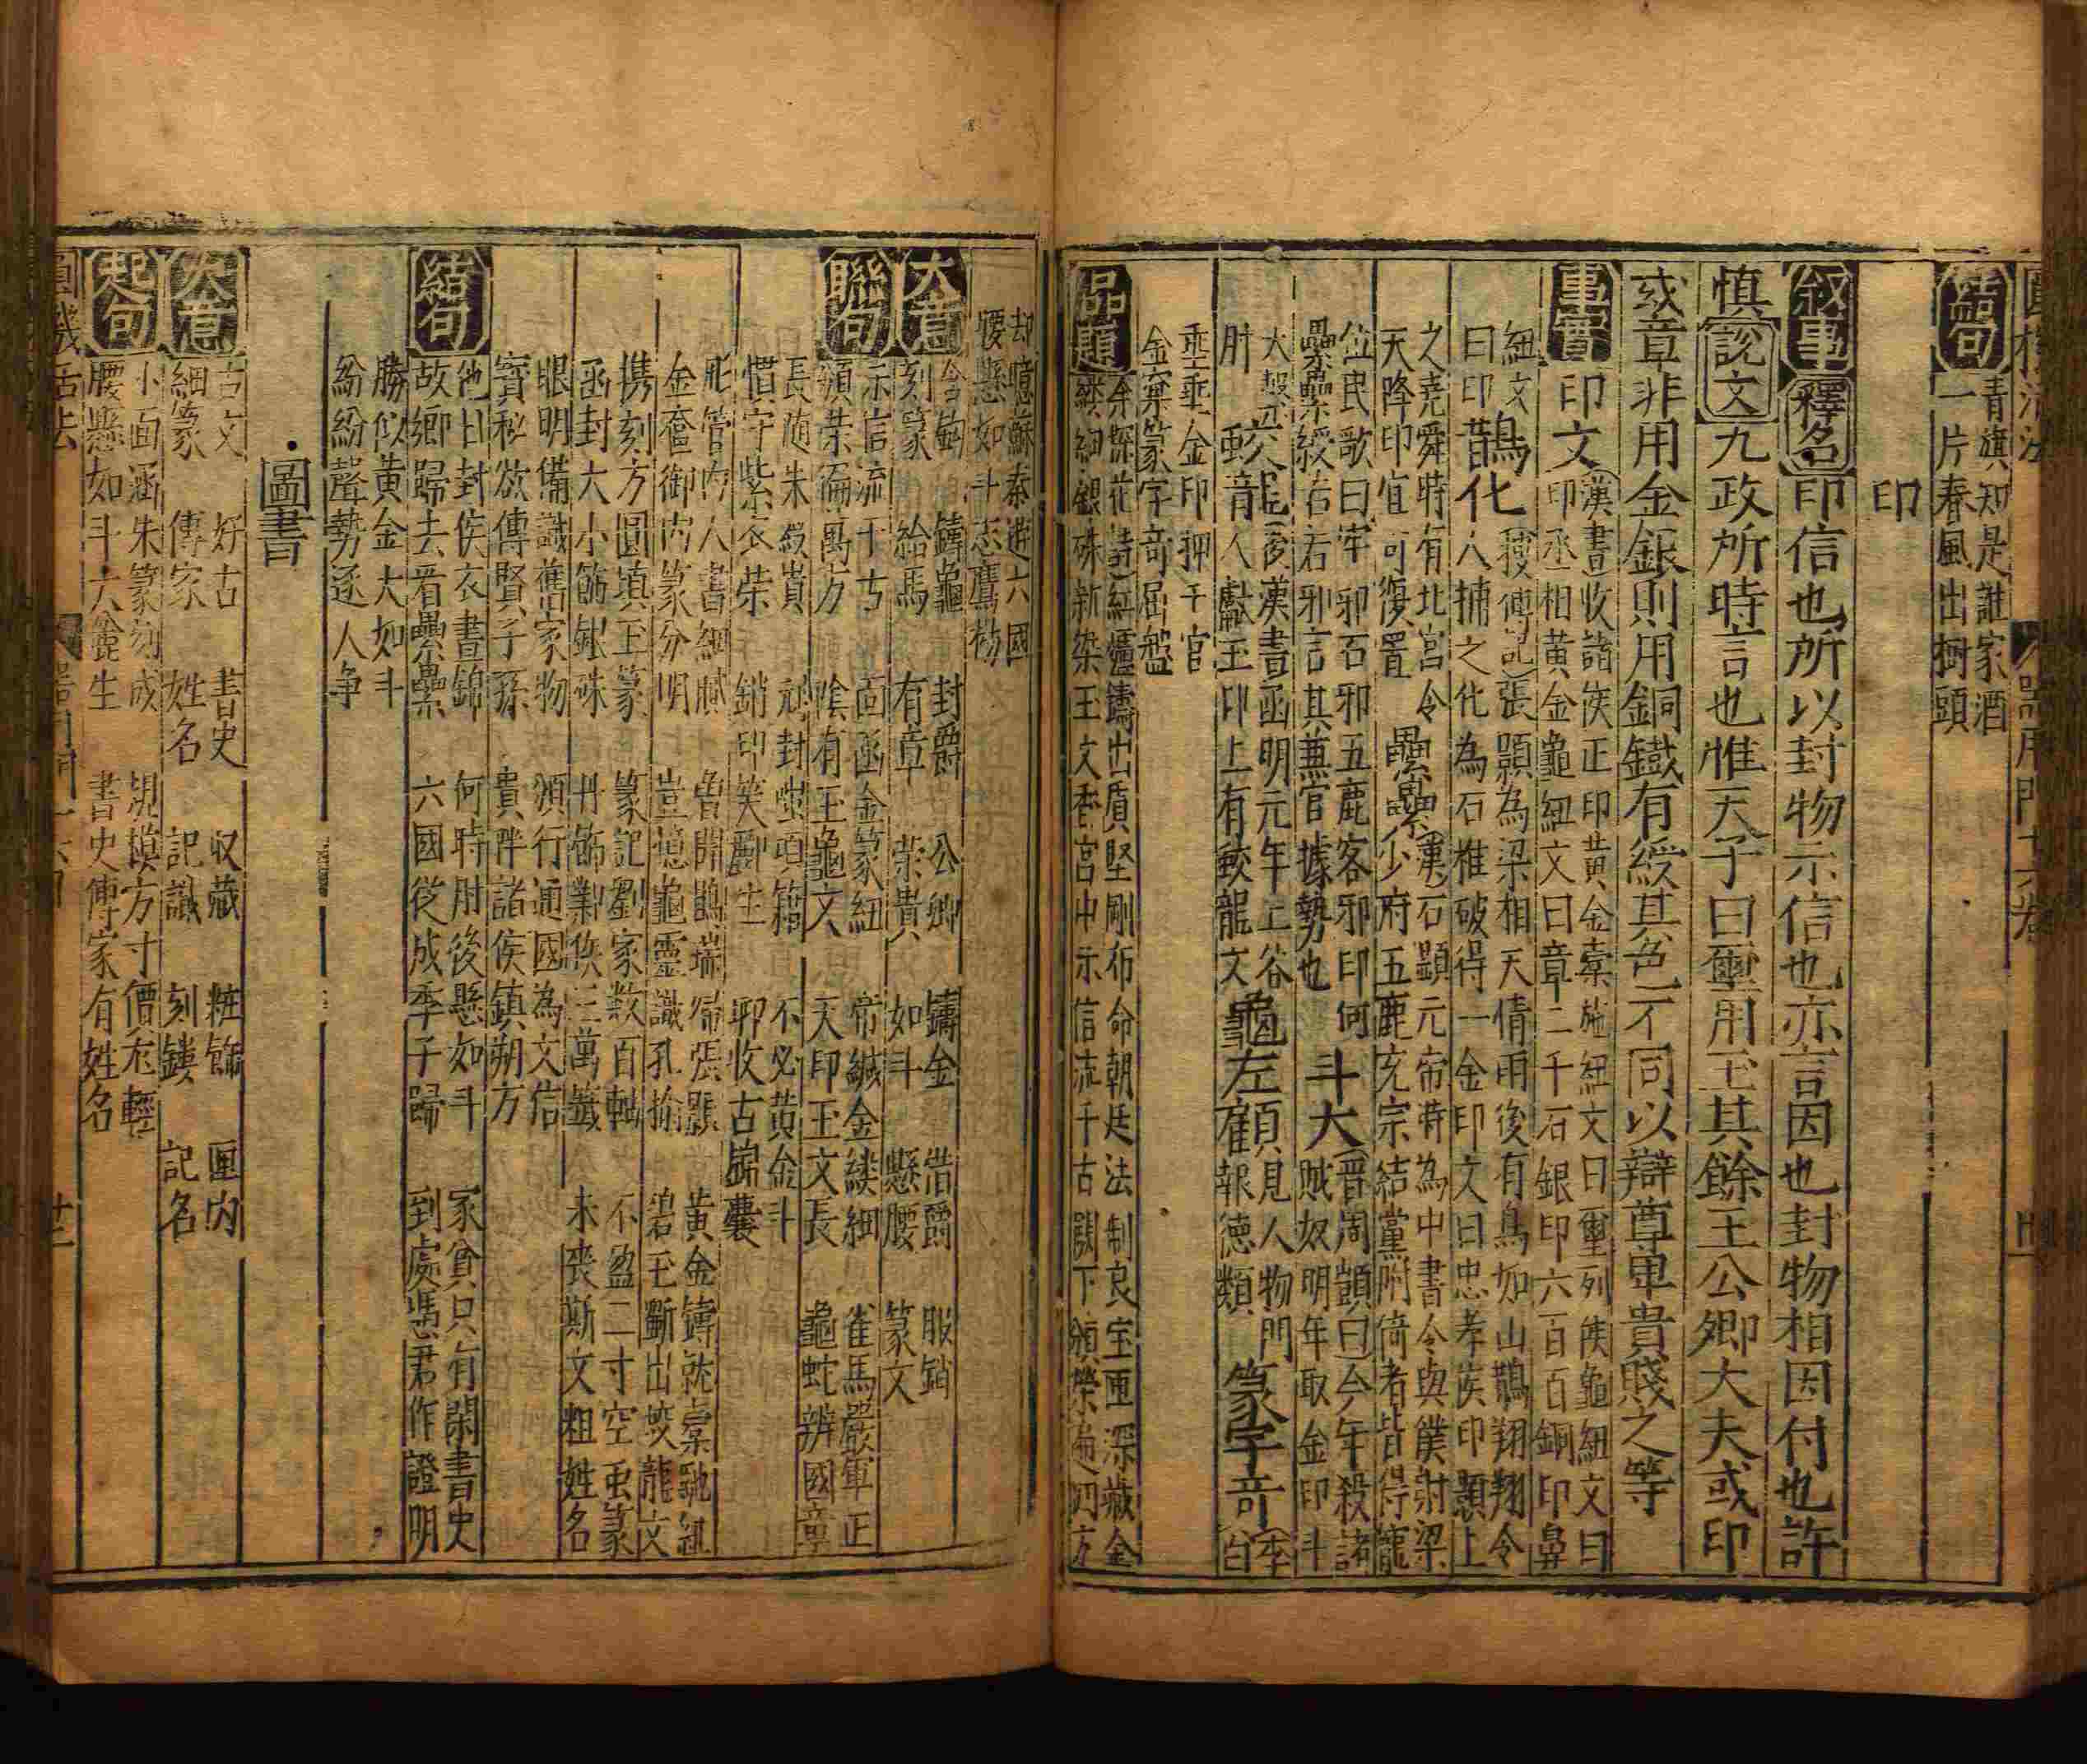 結句
青旗知是誰家酒
一片春風出樹頭
印
敘事 釋名 印信也所以封物示信也亦言因也封物相因付也許
慎說文九政所時言也惟天子曰璽用玉其餘王公卿大夫或印
或章非用金銀則用銅鐵有綬其色不同以辯尊卑貴賤之等
事實 印文
漢書收諸侯正印黄金槖施紐文曰璽列侯龜紐文曰
印丞相黄金龜紐文曰章二千石銀印六百百銅印鼻
紐文
曰印
鵲化
搜傅記張顥為梁相天倩雨後有鳥如山鵲翔翔令
人捕之化為石椎破得一金印文曰忠孝侯印顥上
之堯舜時有北宮令
天降印宜可復置
纍纍
漢石顯元帝時為中書令與僕射梁
少府五鹿充宗結黨附倚者皆得龍
位民歌曰牢邪石邪五鹿客邪印何
纍纍綬若若邪言其兼官據勢也
斗大
晋周顗曰今年殺諸
賊奴明年取金印斗
大繫
肘
蛟龍
後漢書函明元年上谷
人獻玉印上有蛟龍文
龜左顧
見人物門
報徳類
篆字奇
季
百
垂垂金印押千官
金寀篆字奇屈盤
品題
余探花詩紅爐鑄出質堅剛布命朝廷法制良宝匣深藏金
綬細銀硃新染玉文香宮中示信流千古闕下頒榮遍四方
却憶蘇秦遊六國
腰懸如斗志鷹揚
大意
合鈎 鑄龜 封爵 公卿 鑄金 借爵 服銷
刻篆 給馬 有章 榮貴 如斗 懸腰 篆文
聯句
示信流千古 函金篆紐 帝緘金緩細 雀馬嚴軍正
頒荣徧萬方 陰有玉龜文 天印玉文長 龜蛇辨國章
長随朱綬貴 封蚩頭籍 不必黄金斗
慣守紫衣荣 銷印笑酈生 卬收古錦囊
肥管内人書細膩 曾開鵲瑞 張顥 黄金鑄就槖駞紐
金奩御内篆分明 豈憶龜靈識孔愉 碧玉斷出蛟龍文
携刻方圓填玉篆 篆記劉家数百軸 不盈二寸空虫篆
函封大小飾銀硃 丹飾鄴侯三萬籖 未喪斯文粗姓名
眼明備識舊家物 頒行通國為文信
寳秘欲傳賢子孫 貴畔諸侯鎮朔方
結句
他日封侯衣晝錦 何時肘後懸如斗 家貧只有閑書史
故郷歸去看纍纍 六國從成季子歸 到處馮君作證明
勝似黄金大如斗
紛紛聲勢逐人争
圖書
大意
古文 好古 書史 収藏 粧飾 匣内
細篆 傳家 姓名 記識 刻鏤 記名
起句
小面涵朱篆刻成 規模方寸價尤輕
腰懸如斗 生 書史傳家有姓名